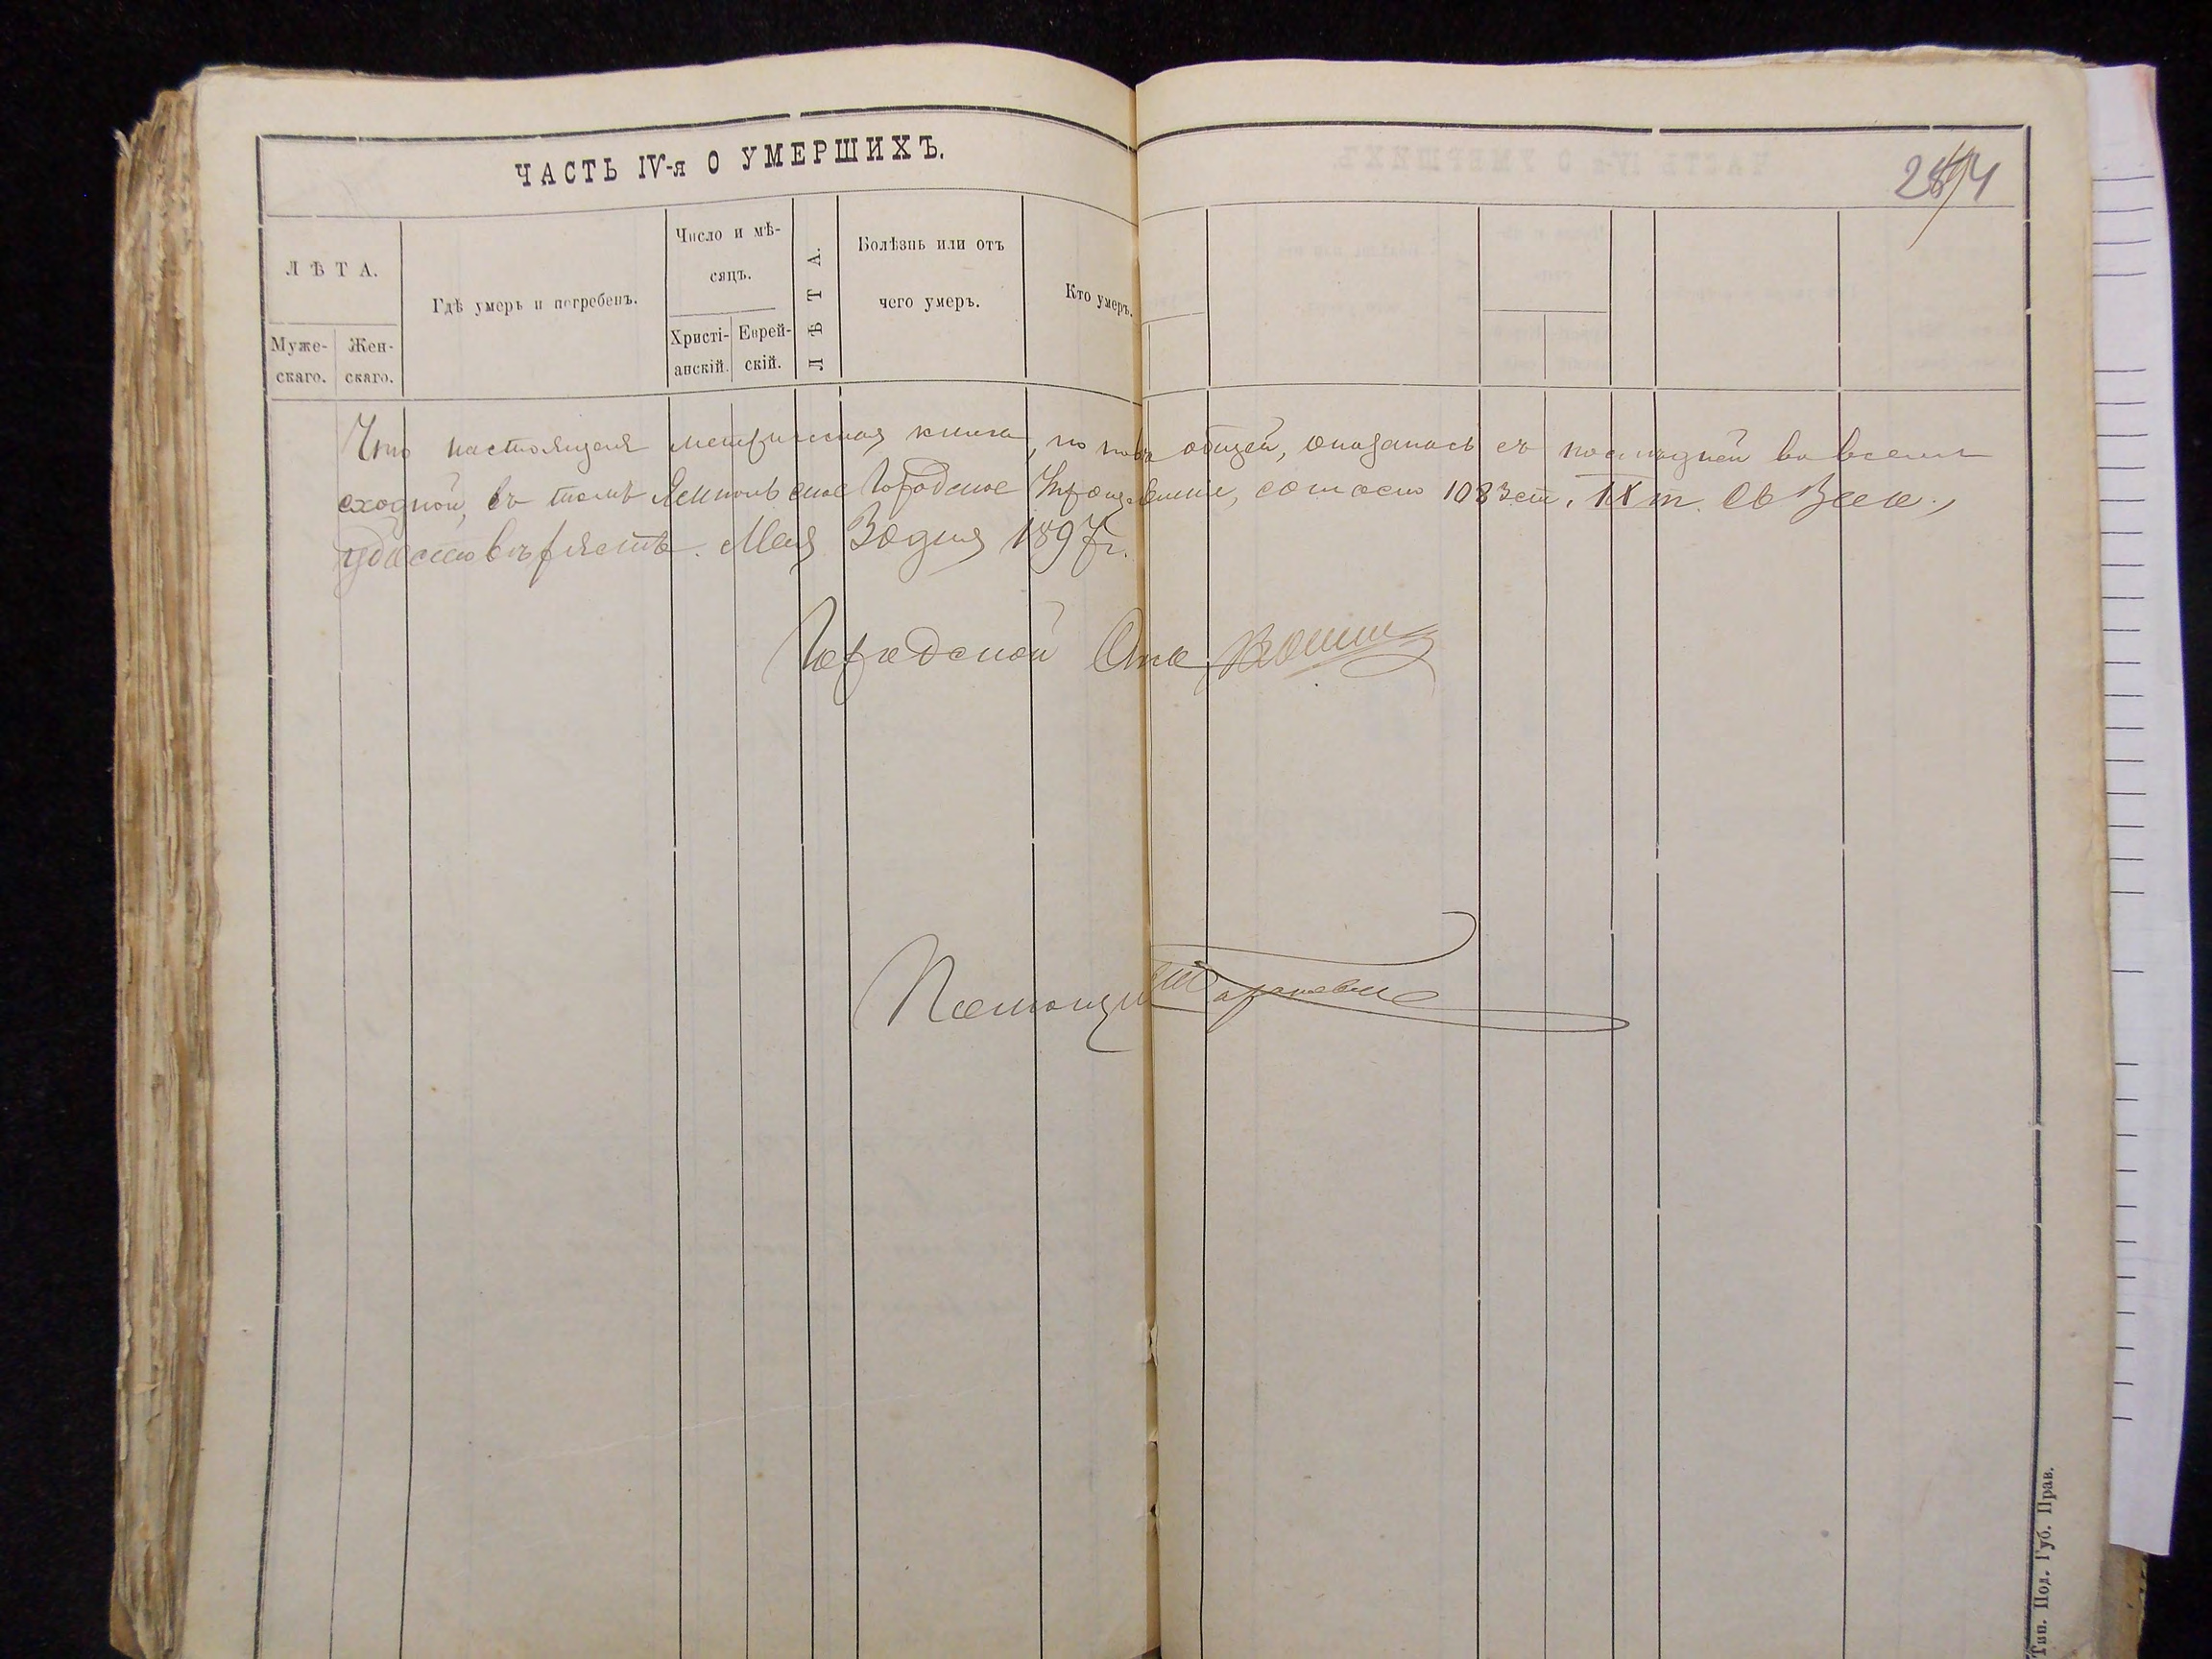 ЧАСТЬ IV-я О УМЕРШИХЪ.
284
ЛѢТА.
Муже-
скаго.
Жен-
скаго.
Гдѣ умеръ и погребенъ.
Число и мѣ-
сяцъ.
Христі-
анскій.
Еврей-
скій.
ЛѢТА.
Болѣзнь или отъ
чего умеръ.
Кто умеръ.
Что настоящая метрическая книга, по общей, оказалась съ последней во всемъ
сходной, въ томъ Ямпольское Городское Управленіе, согласно 1083 ст. IX т. Св Зак.,
удостовѣряетъ. Мая 30 дня 1897 г.
Городской
Тип. Под. Губ. Прав.